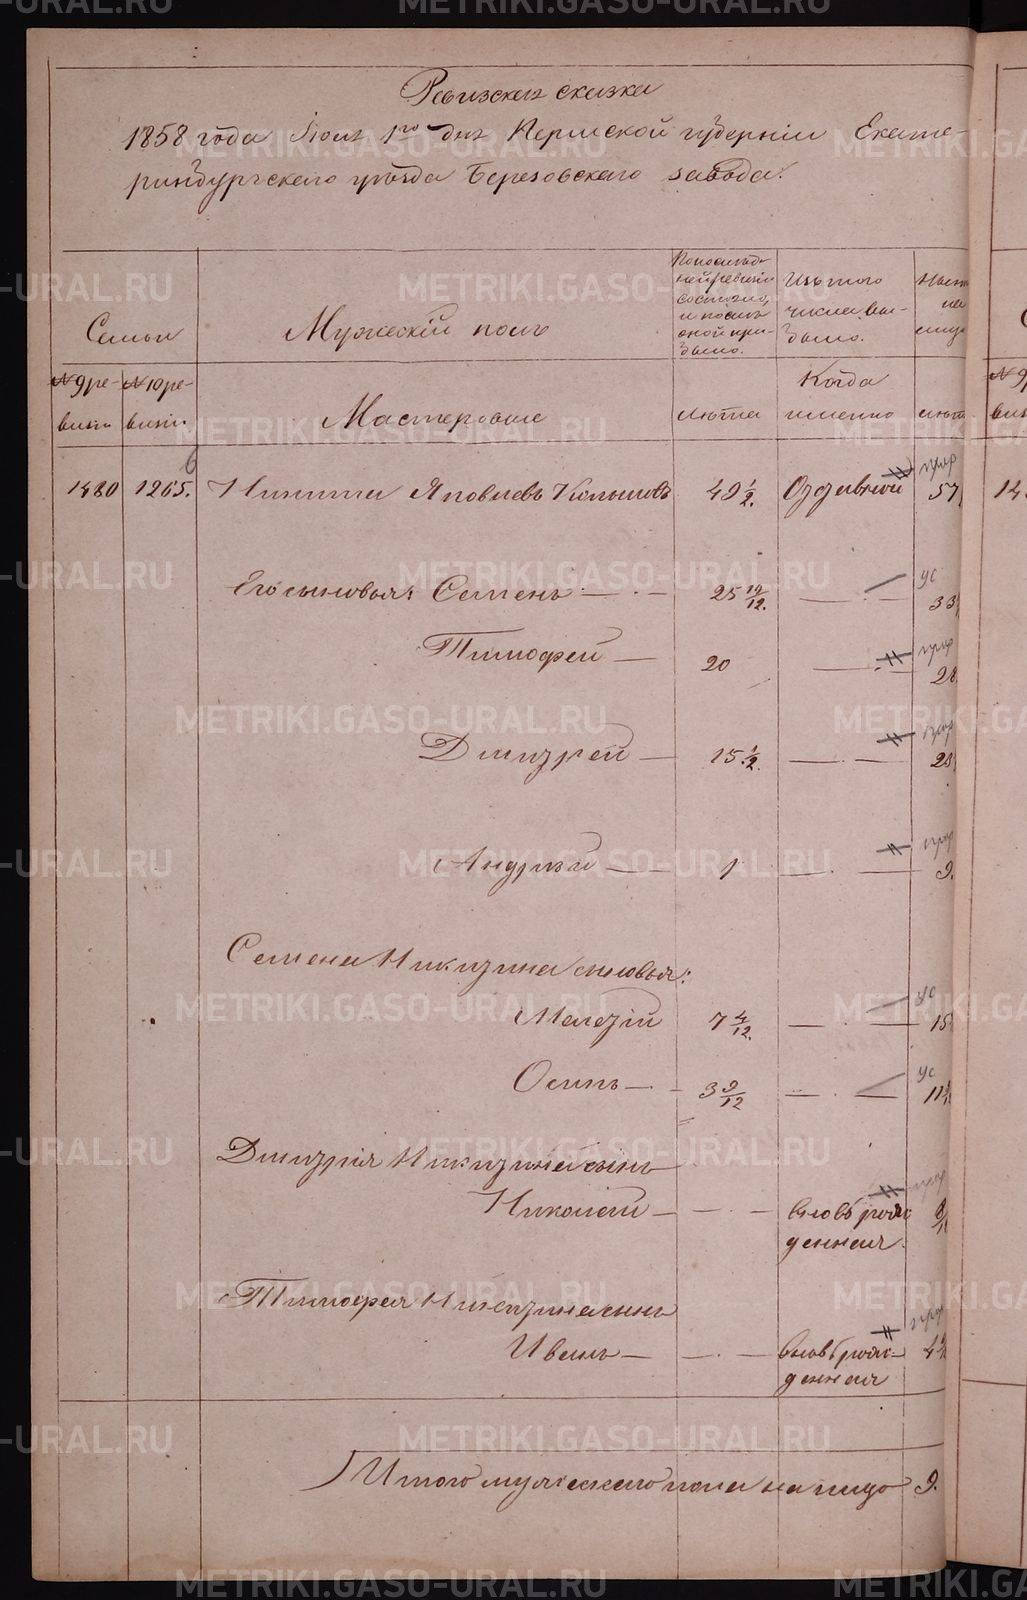 Ревизская сказка
1858 года Июня 1го дня Пермской губерніи Екате-
ринбургскаго уѣзда Березовскаго завода.
Семьи
Мужескій полъ
По послѣд-
ней ревизіи
состояло,
и послѣ
оной при-
было.
Изъ того
числа вы-
было.
на
лицо
№ 9 ре-
визіи
№ 10 ре-
визіи.
Мастеровые
лѣта
Когда
именно
лѣта
1480 1265. Никита Яковлевъ 49 1/2. 57
Его сыновья: Семенъ 25 10/12. ус 33
Тимофей 20 28
Дмитрей 15 1/2. 23
Андрей 1 9.
Семена Никитина сыновья:
7 4/12. ус 15
Осипъ 3 9/12 ус 11
Дмитрія Никитина сынъ
Николай вновь рож
денная.
Тимофея Никитина сынъ
Иванъ вновь рож-
денная
Итого мужескаго пола на лицо 9.
METRIKI.GASO-URAL.RU